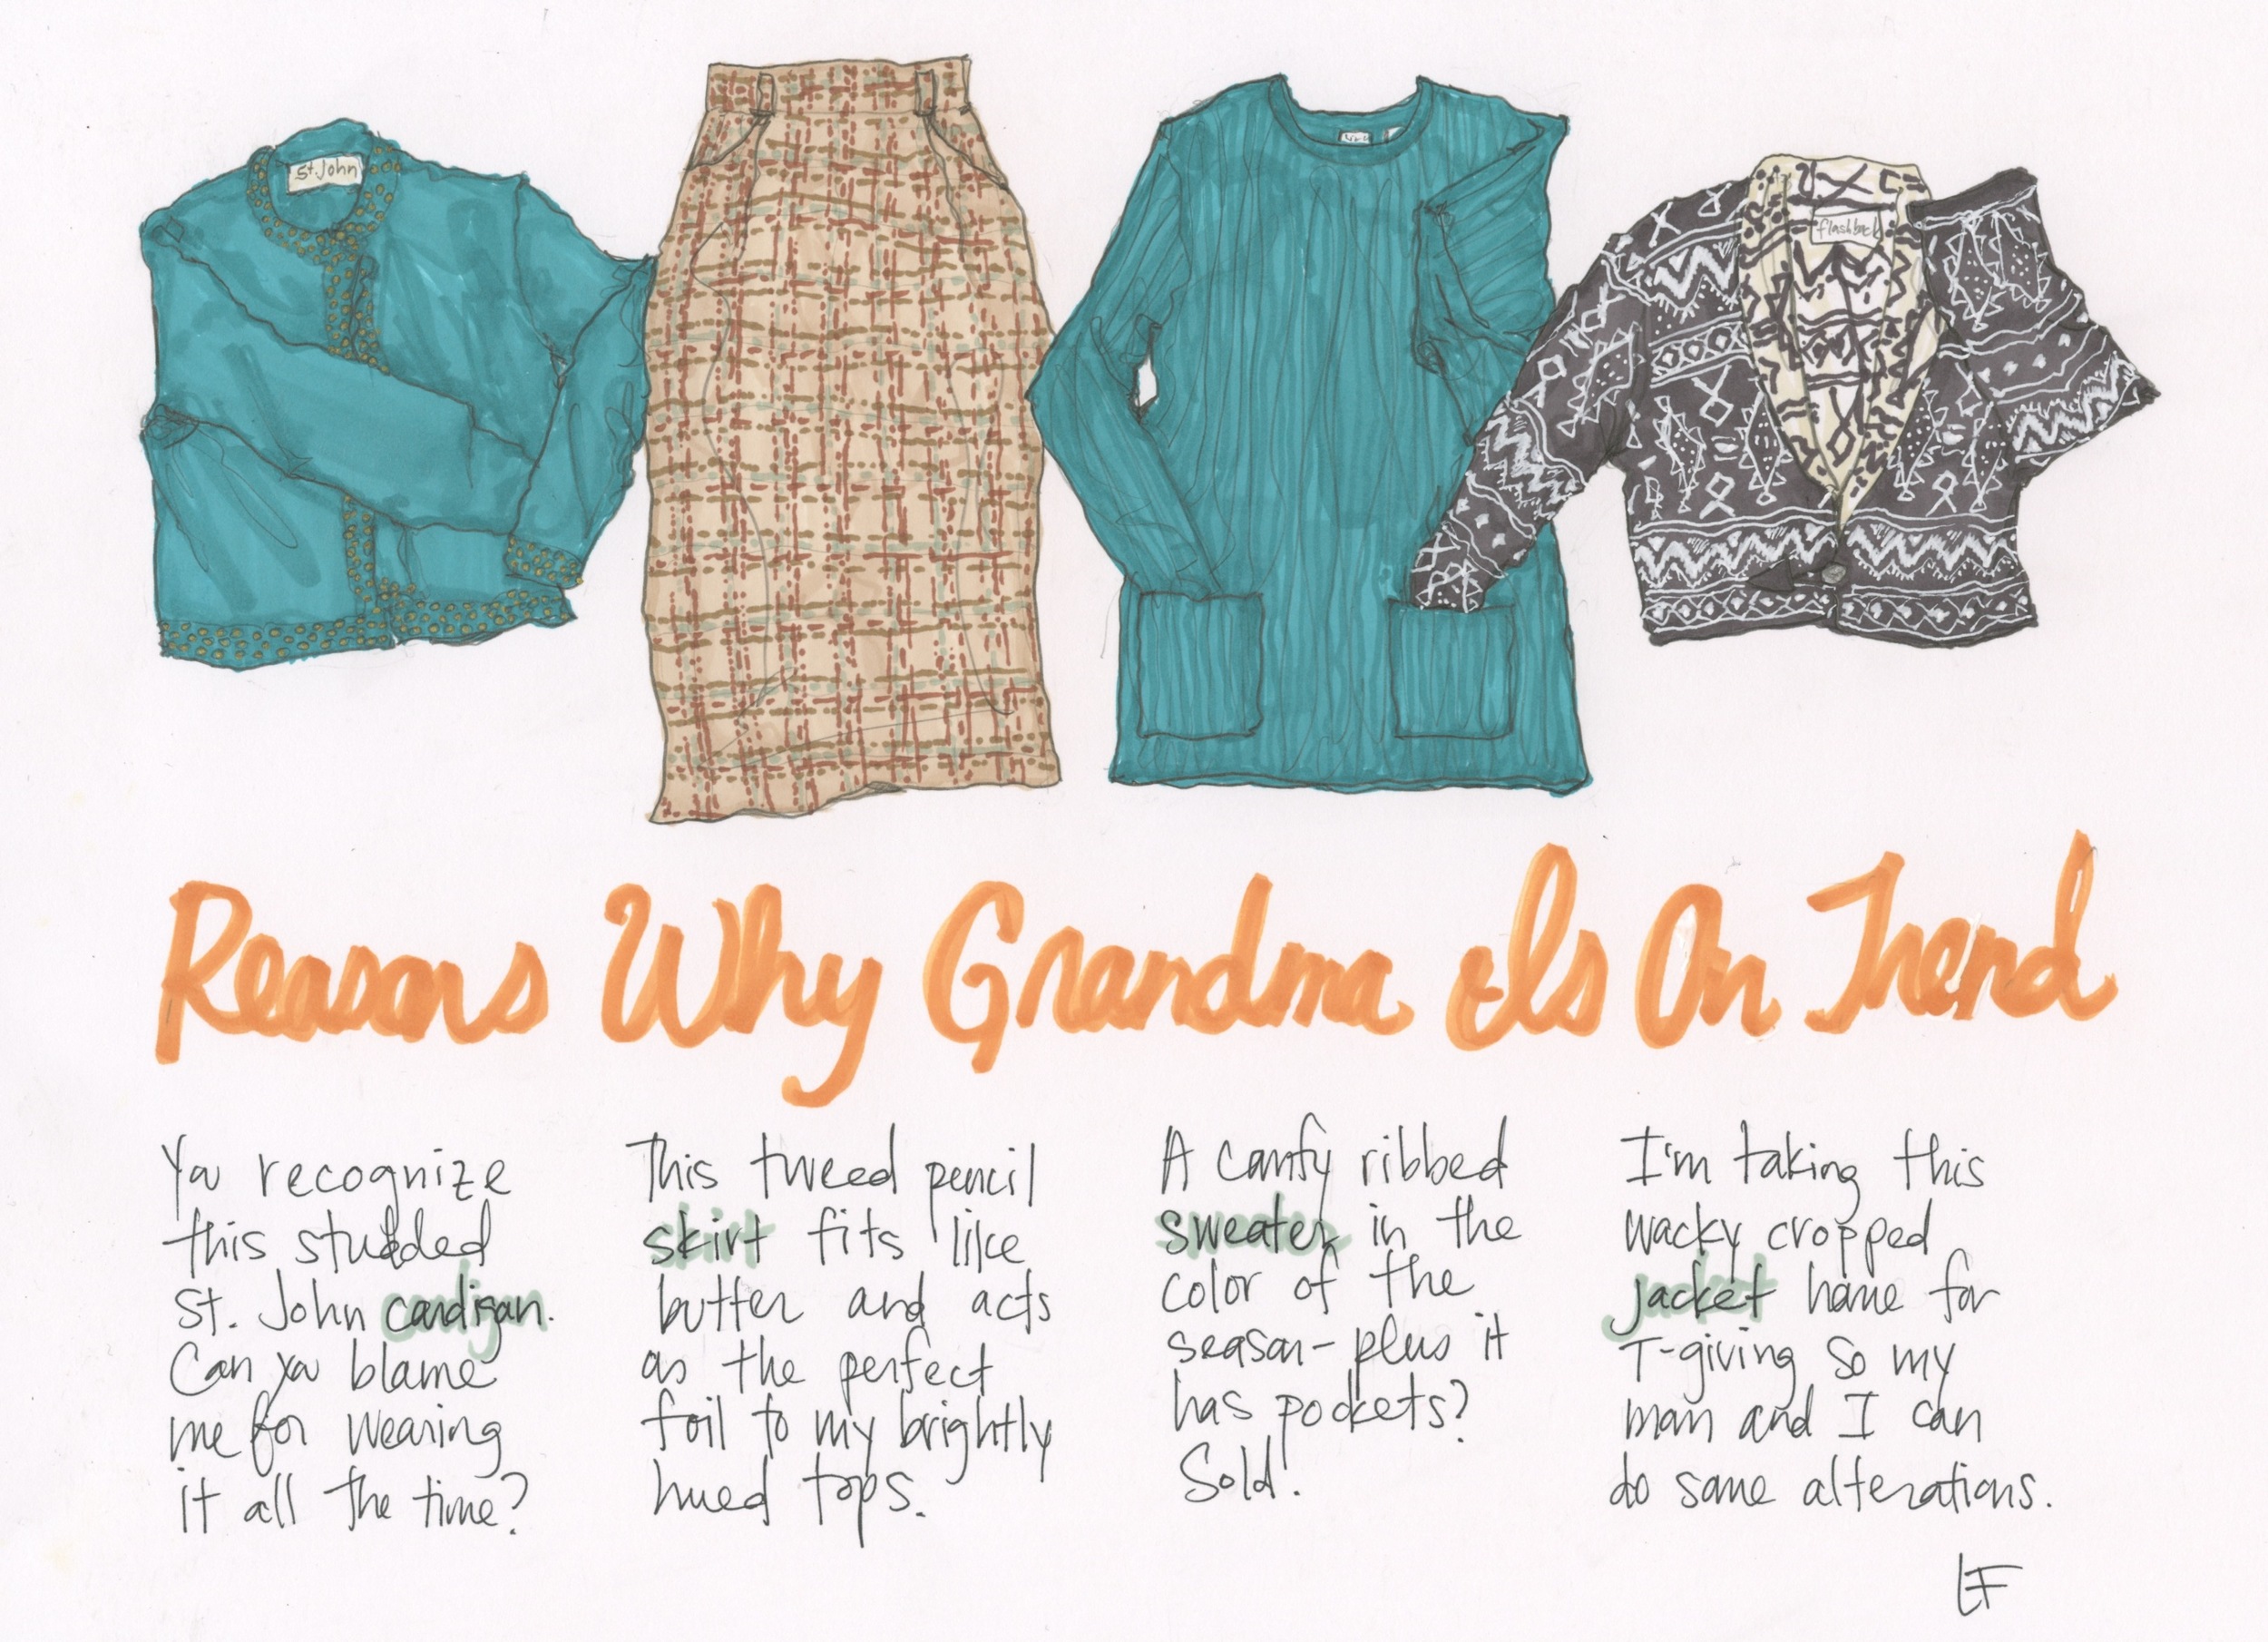 St. John
flashback
Reasons Why Grandma Is On Trend
You recognize
this studded
St. John cardigan.
Can you blame
me for wearing
it all the time?
This tweed pencil
skirt fits like
butter and acts
as the perfect
foil to my brightly
hued tops.
A comfy ribbed
sweater in the
color of the
season - plus it
has pockets?
Sold!
I'm taking this
wacky cropped
jacket home for
T-giving so my
mom and I can
do some alterations.
LF